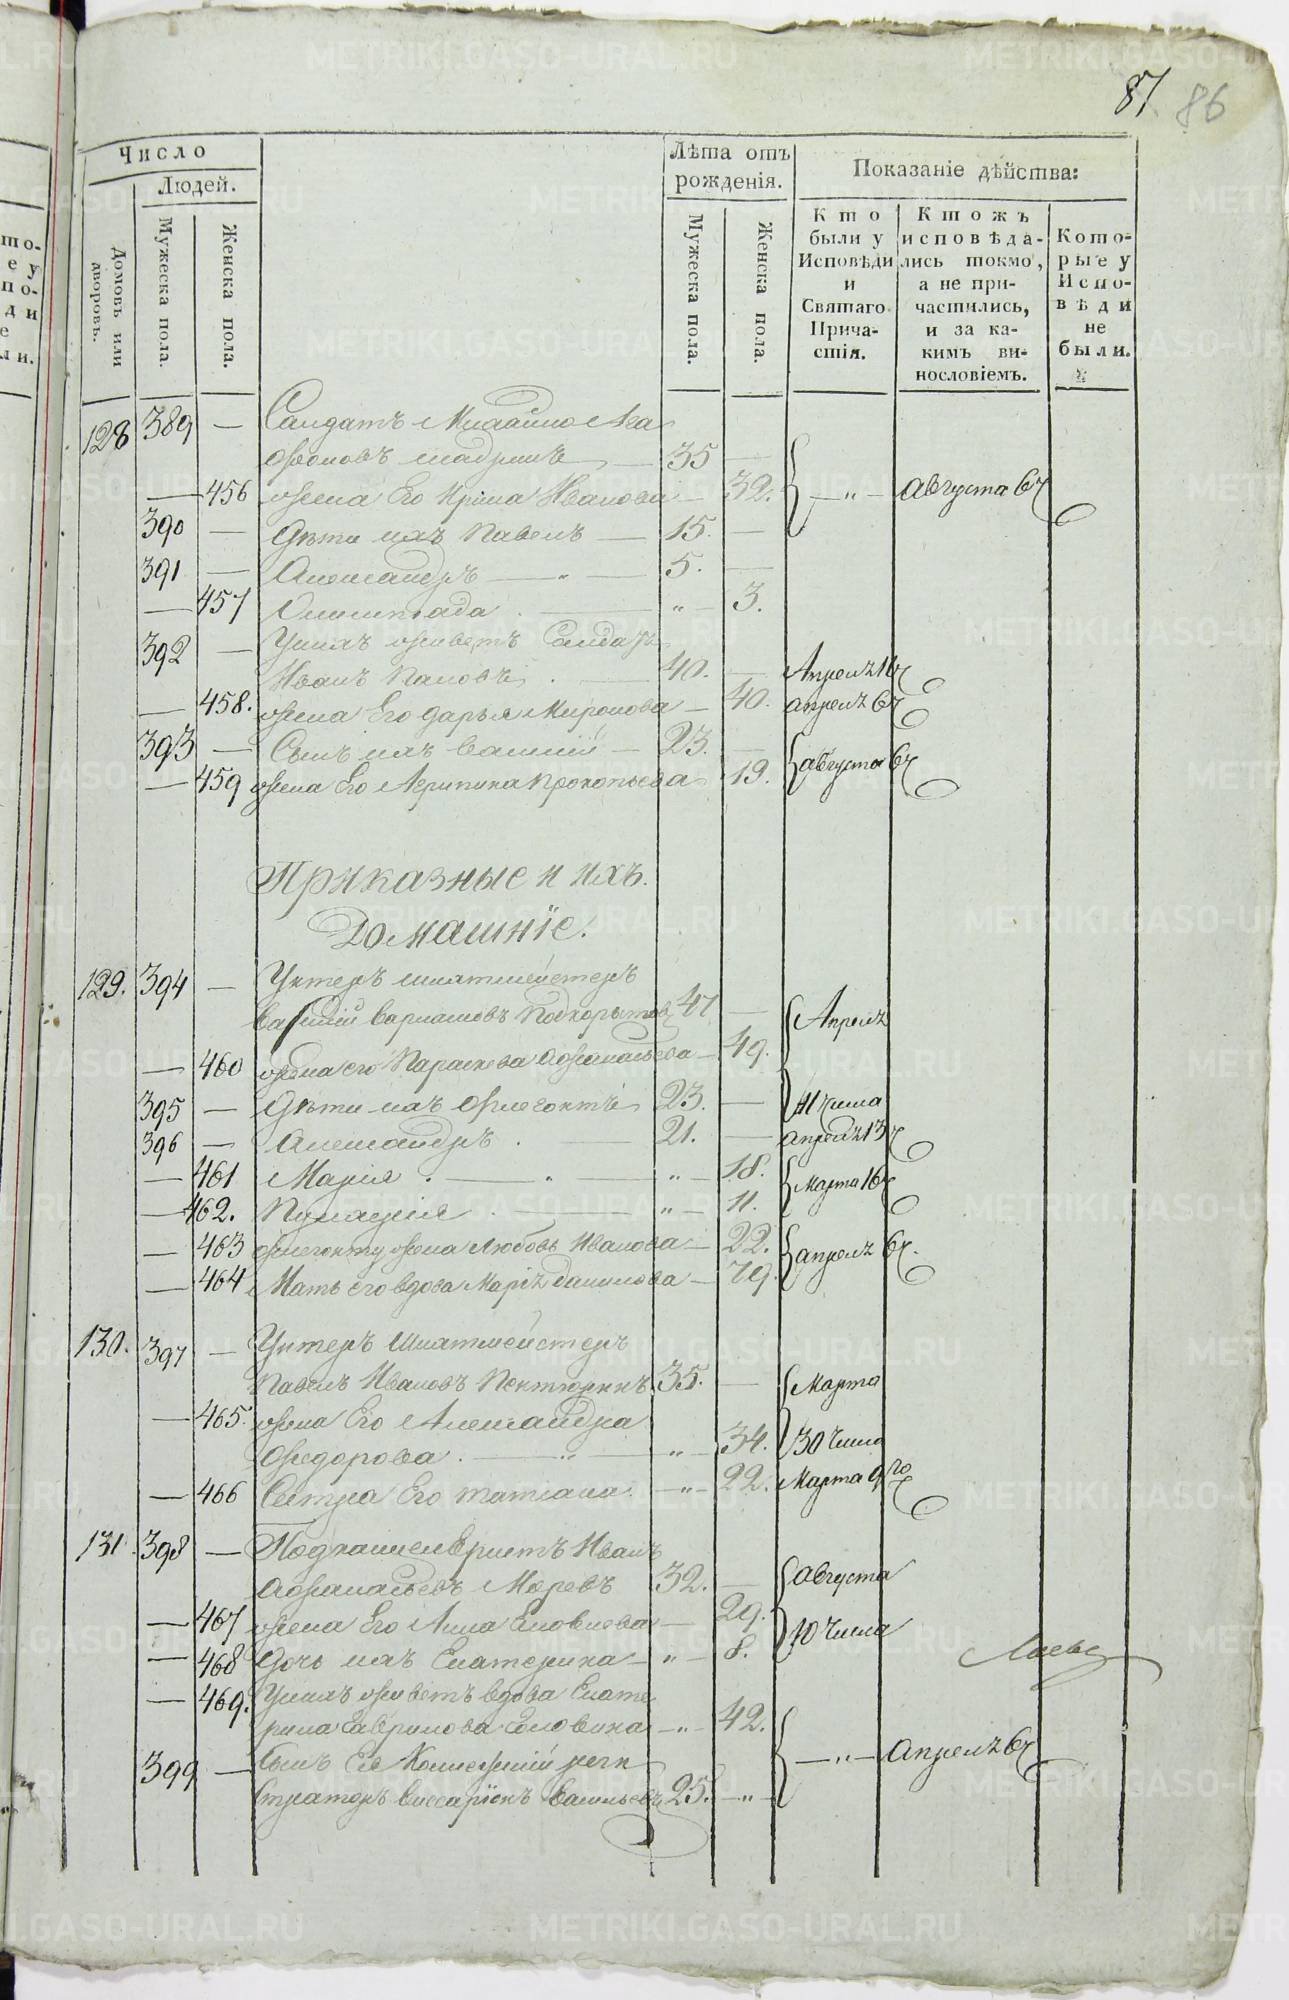 87 86
Число
Людей.
Домовъ или дворовъ.
Мужеска пола.
Женска пола.
Лѣта отъ рожденія.
Мужеска пола.
Женска пола.
Показаніе дѣйства:
Кто были у Исповѣди и Святаго Причастія.
Ктожъ исповѣдались токмо, а не причастились, и за какимъ винословіемъ.
Которые у Исповѣди не были.
128 389 — Салдатъ Михайло Ага
фоновъ шадринъ — 35 —
— 456 жена Его Ирина Иванова — 32. — „ — августа 6 ч
390 — Дѣти ихъ Павелъ — 15. —
391 — Александръ — „ — 5. —
— 457 Олимпіада . — „ — 3.
392 — Унихъ живетъ Салдатъ
Иванъ Поповъ . — 40. — Апреля 16 ч
— 458. жена Его дарья Миронова — 40. апреля 6 ч
393 — Сынъ ихъ василій — 23. —
— 459 жена Его Агрипина Прокопьева 19. августа 6 ч
Приказные и ихъ.
Домашніе.
129. 394 — Унтеръ шихтмейстеръ
василій варламовъ Подкорытовъ 47 — Апреля
— 460 жена его Параскева Афанасьева — 49.
395 — Дѣти ихъ Флегонтъ 23. — 11 числа
396 — Александръ . — 21. — апреля 13 ч
— 461 Марія . — „ — „ — 18. Марта 16 ч
— 462. Пулхерія . — „ — 11.
— 463 Флегонту жена Любовь Иванова — 22. апреля 6 ч.
— 464 Мать его вдова Марія данилова — 79.
130. 397 — Унтеръ Шихтмейстеръ
Павелъ Ивановъ Пентюринъ 35. — Марта
— 465. жена Его Александра
Федорова . — „ — „ — 34. 30 числа
— 466 Сестра Его татіана . — „ — 22. Марта 9го
131. 398 — Подканцеляристъ Иванъ
Афанасьевъ Моревъ 32. — августа
— 467 жена Его Анна Яковлева — 29. 10 числа
— 468 Дочь ихъ Екатерина — „ — 8.
— 469. Унихъ живетъ вдова Екате
рина Гаврилова Головина — „ — 42.
399 — Сынъ Ея Коллежскій реги — „ — апреля 6 ч
страторъ виссаріонъ васильевъ 25. — „ —